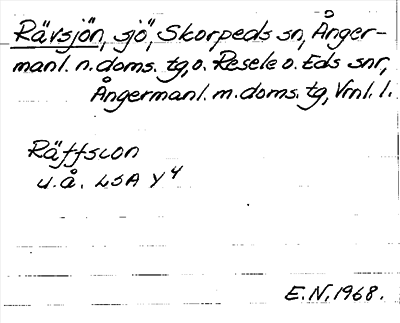 Rävsjön, sjö, Skorpeds sn, Ånger-
manl. n. doms. tg, o. Resele o. Eds snr,
Ångermanl. m. doms. tg, Vrnl. l.
Räffsion
u. å. LSA Y 4
E.N. 1968.